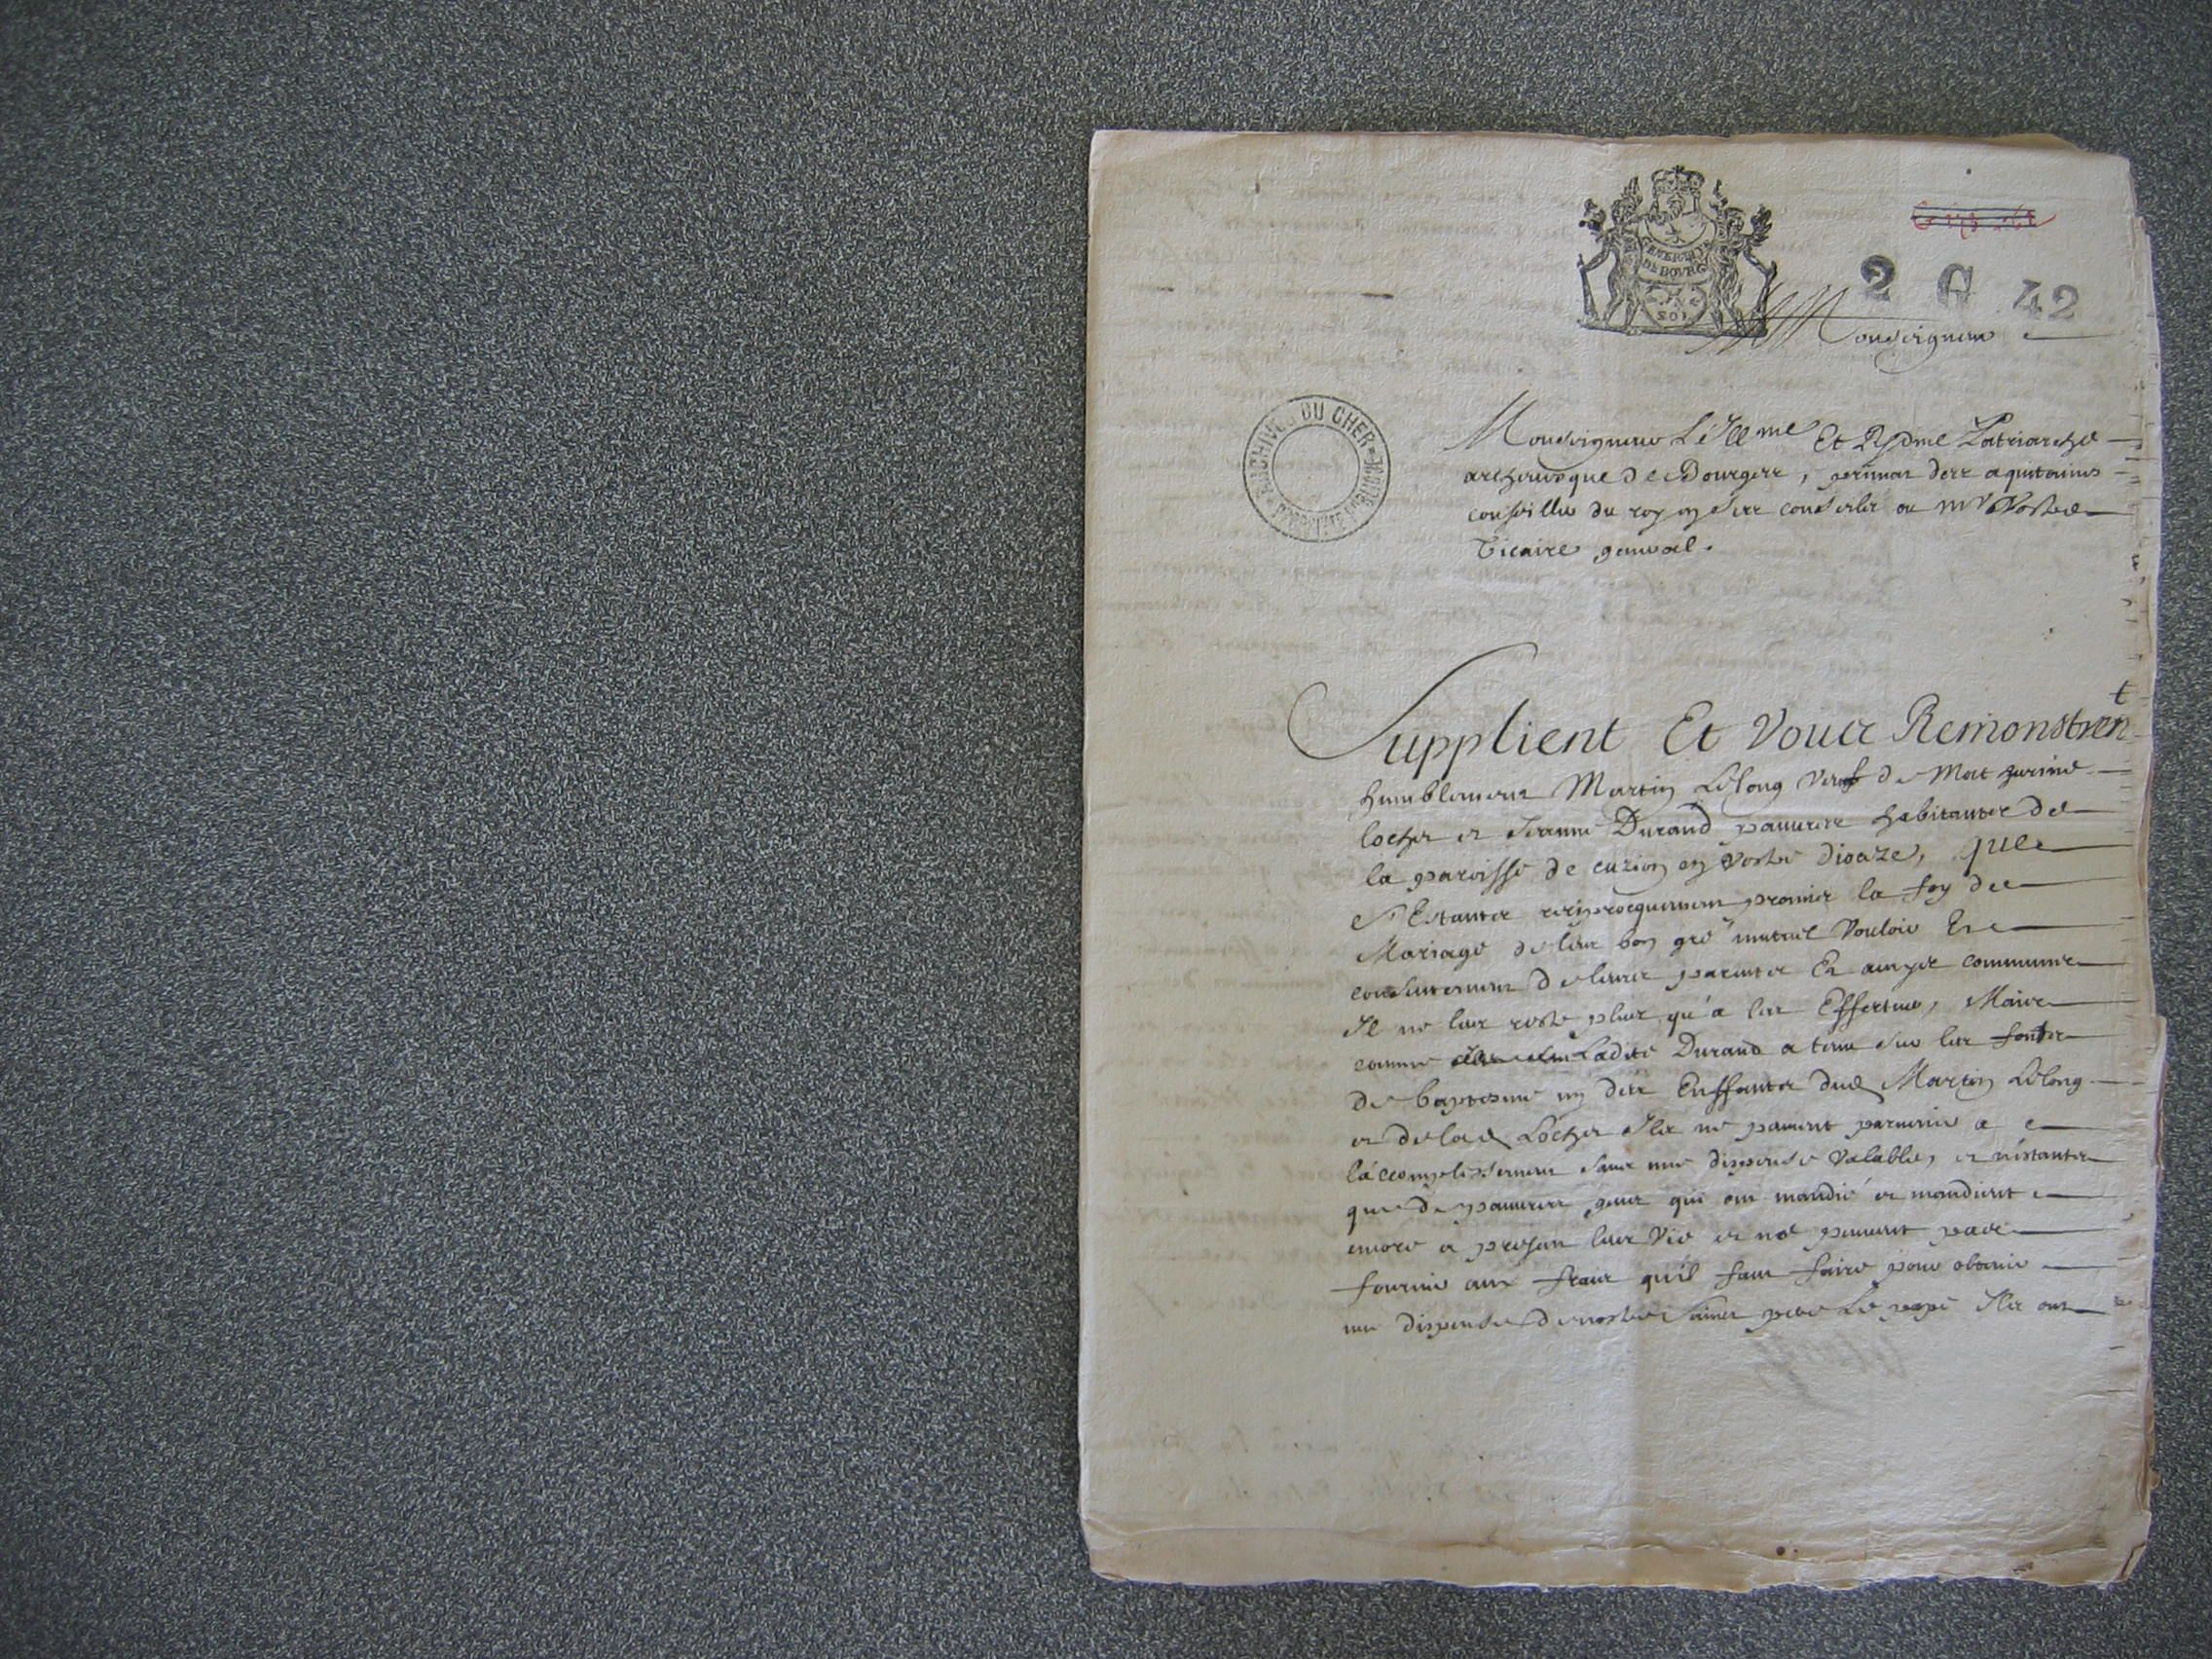 GENERALITE
DE BOURG
SOL
2 G 42
Monseigneur
ARCHIVES DU CHER
Monseigneur L'Illme Et Rsme Patriarche
archeuesque de Bourges, primat des aquitaines
conseiller du roy en ses conseils ou mr Vostre
Vicaire general.
Supplient Et Vous Remonstrent
humblement Martin Lelong veuf de Mathurine
Locher et Jeanne Durand pauures habitants de
la paroisse de cuzion en vostre dioceze, que
s'Estants reciprocquement promis la foy de
Mariage de leur bon gré mutuel vouloir Et
consentement de leurs parents Et amys communs
Il ne leur reste plus qu'a les Effectuer, Mais
comme Ladite Durand a tenu sur les fonts
de baptesme un des Enffants dud Martin Lelong
et de lad Locher Ils ne peuuent paruenir a
l'accomplissement sans une dispense valable, et n'estants
que de pauures gens qui ont mandié et mandient
encore a presant leur vie et ne peuuent pas
fournir aux frais qu'il faut faire pour obtenir
une dispense de nostre Sainct pere Le pape Ils ont